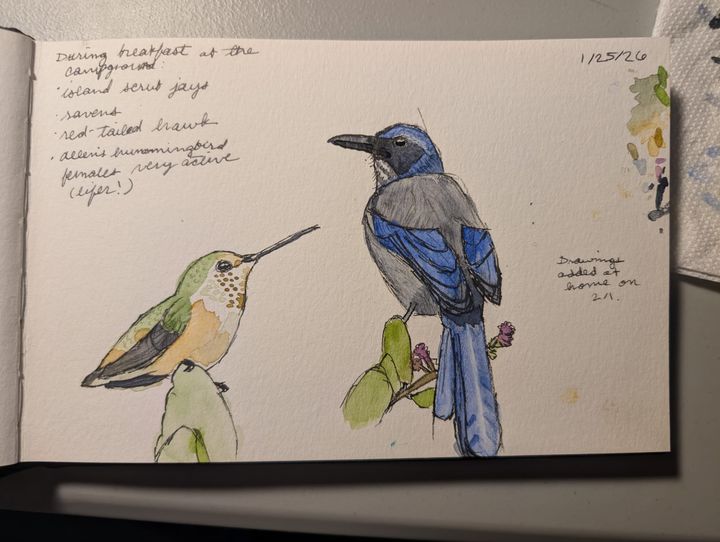 During breakfast at the
campground:
• island scrub jays
• ravens
• red-tailed hawk
• allen's hummingbird
females very active
(lifer!)
1/25/26
Drawings
added at
home on
2/1.